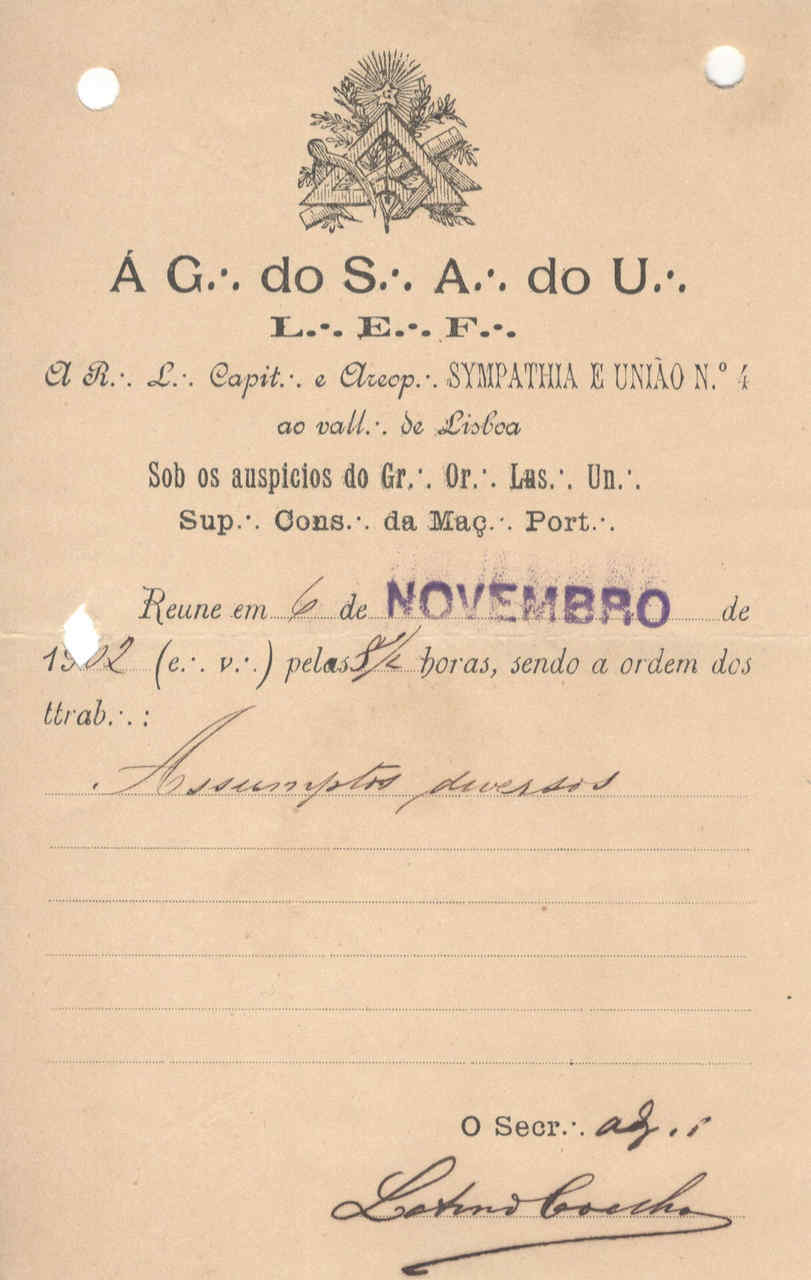 Á G.·. do S.·. A.·. do U.·.
L.·. E.·. F.·.
A R.·. L.·. Capit.·. e Areop.·. SYMPATHIA E UNIÃO N.º 4
ao vall.·. de Lisboa
Sob os auspicios do Gr.·. Or.·. Lus.·. Un.·.
Sup.·. Cons.·. da Maç.·. Port.·.
Reune em 6 de NOVEMBRO de
1902 (e.·. v.·.) pelas 8 1/2 horas, sendo a ordem dos
ttrab.·. :
Assumptos diversos
O Secr.·. adj.·.
Latino Coelho